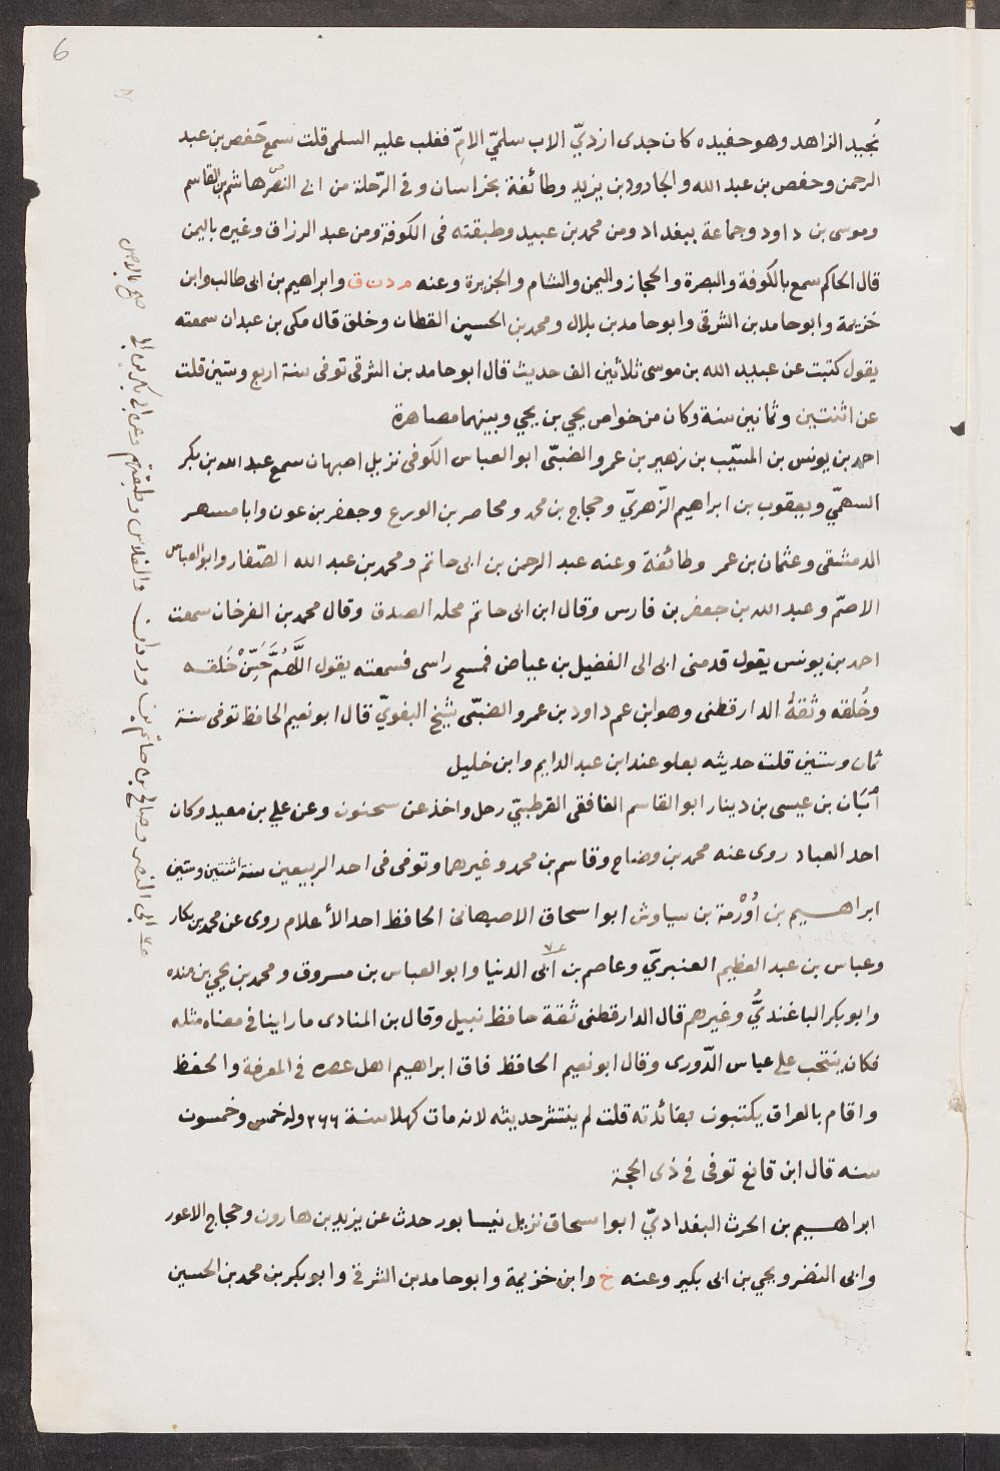 6
نُجيد الزاهد وهو حفيده كان جدى ازديّ الاب سلميّ الامّ فغلب عليه السلمى قلت سمع حَفص بن عبد
الرحمن وحفص بن عبد الله والجارود بن يزيد وطائفة بخراسان وفى الرّحلة من ابى النضر هاشم بن القاسم
وموسى بن داود وجماعة ببغداد ومن محمد بن عبيد وطبقته فى الكوفة ومن عبد الرزاق وغيره باليمن
قال الحاكم سمع بالكوفة والبصرة والحجاز واليمن والشام والجزيرة وعنه م د ن ق وابراهيم بن ابى طالب وابن
خزيمة وابو حامد بن الشرقى وابو حامد بن بلال ومحمد بن الحسين القطان وخلق قال مكى بن عبدان سمعته
يقول كتبت عن عبيد الله بن موسى ثلاثين الف حديث قال ابو حامد بن الشرقى توفى سنة اربع وستين قلت
عن اثنتين وثمانين سنة وكان من خواص يحيي بن يحيي وبينهما مصاهرة
احمد بن يونس بن المسيّب بن زهير بن عمرو الضبّى ابو العباس الكوفى نزيل اصبهان سمع عبد الله بن بكر
السهمّي ويعقوب بن ابراهيم الزّهريّ وحجاج بن محمد ومحاصر بن الورع وجعفر بن عون وابا مسهر
الدمشقى وعثمان بن عمر وطائفة وعنه عبد الرحمن بن ابى حاتم ومحمد بن عبد الله الصّفار وابو العباس
الاصمّ وعبد الله بن جعفر بن فارس وقال ابن ابى حاتم محله الصدق وقال محمد بن الفرخان سمعت
احمد بن يونس يقول قدمنى ابى الى الفضيل بن عياض فمسح راسى فسمعته يقول اللَّهُمَّ حَسِّنْ خَلقه
وخُلقه وثقهُ الدارقطنى وهو ابن عم داود بن عمرو الضبّى شيخ البغويّ قال ابو نعيم الحافظ توفى سنة
ثمان وستين قلت حديثه بعلو عند ابن عبد الدايم وابن خليل
أبَان بن عيسى بن دينار ابو القاسم الغافقى القرطبىّ رحل واخذ عن سحنون وعن علي بن معبد وكان
احد العباد روى عنه محمد بن وضاح وقاسم بن محمد وغيرهما وتوفى فى احد الربيعين سنة اثنتين وستين
ابراهيم بن أوُرْمة بن سياوش ابو اسحاق الاصبهانى الحافظ احد الأعلام روى عن محمد بن بكار
وعباس بن عبد العظيم العنبريّ وعاصم بن ابى الدنيا وابو العباس بن مسروق ومحمد بن يحيي بن منده
وابو بكر الباغنديُّ وغيرهم قال الدارقطنى ثقة حافظ نبيل وقال بن المنادى ما راينا فى معناه مثله
فكان ينتخب على عباس الدّورى وقال ابو نعيم الحافظ فاق ابراهيم اهل عصره فى المعرفة والحفظ
واقام بالعراق يكتبون بفائدته قلت لم ينتشر حديثه لانه مات كهلا سنة ٢٦٦ وله خمس وخمسون
سنه قال ابن قانع توفى فى ذى الحجة
ابراهيم بن الحرث البغداديّ ابو اسحاق نزيل نيسابور حدث عن يزيد بن هارون وحجاج الاعور
وابى النضر ويحيي بن ابى بكير وعنه خ وابن خزيمة وابو حامد بن الشرقى وابو بكر بن محمد بن الحسين
ابى النضر وصالح بن حاتم بن وردان والفلاس وطبقتهم وعنه ابو بكر بن ابى صح بالاصل